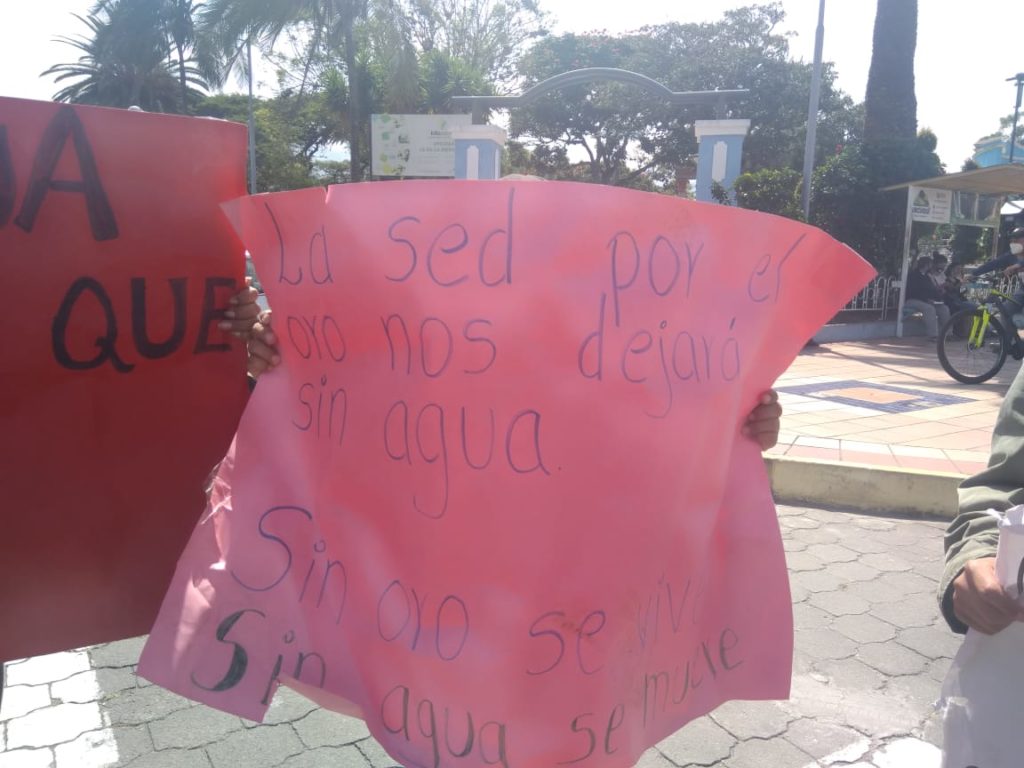 UA
QUE
La sed por el
oro nos dejará
sin agua.
Sin oro se vive
Sin agua se muere